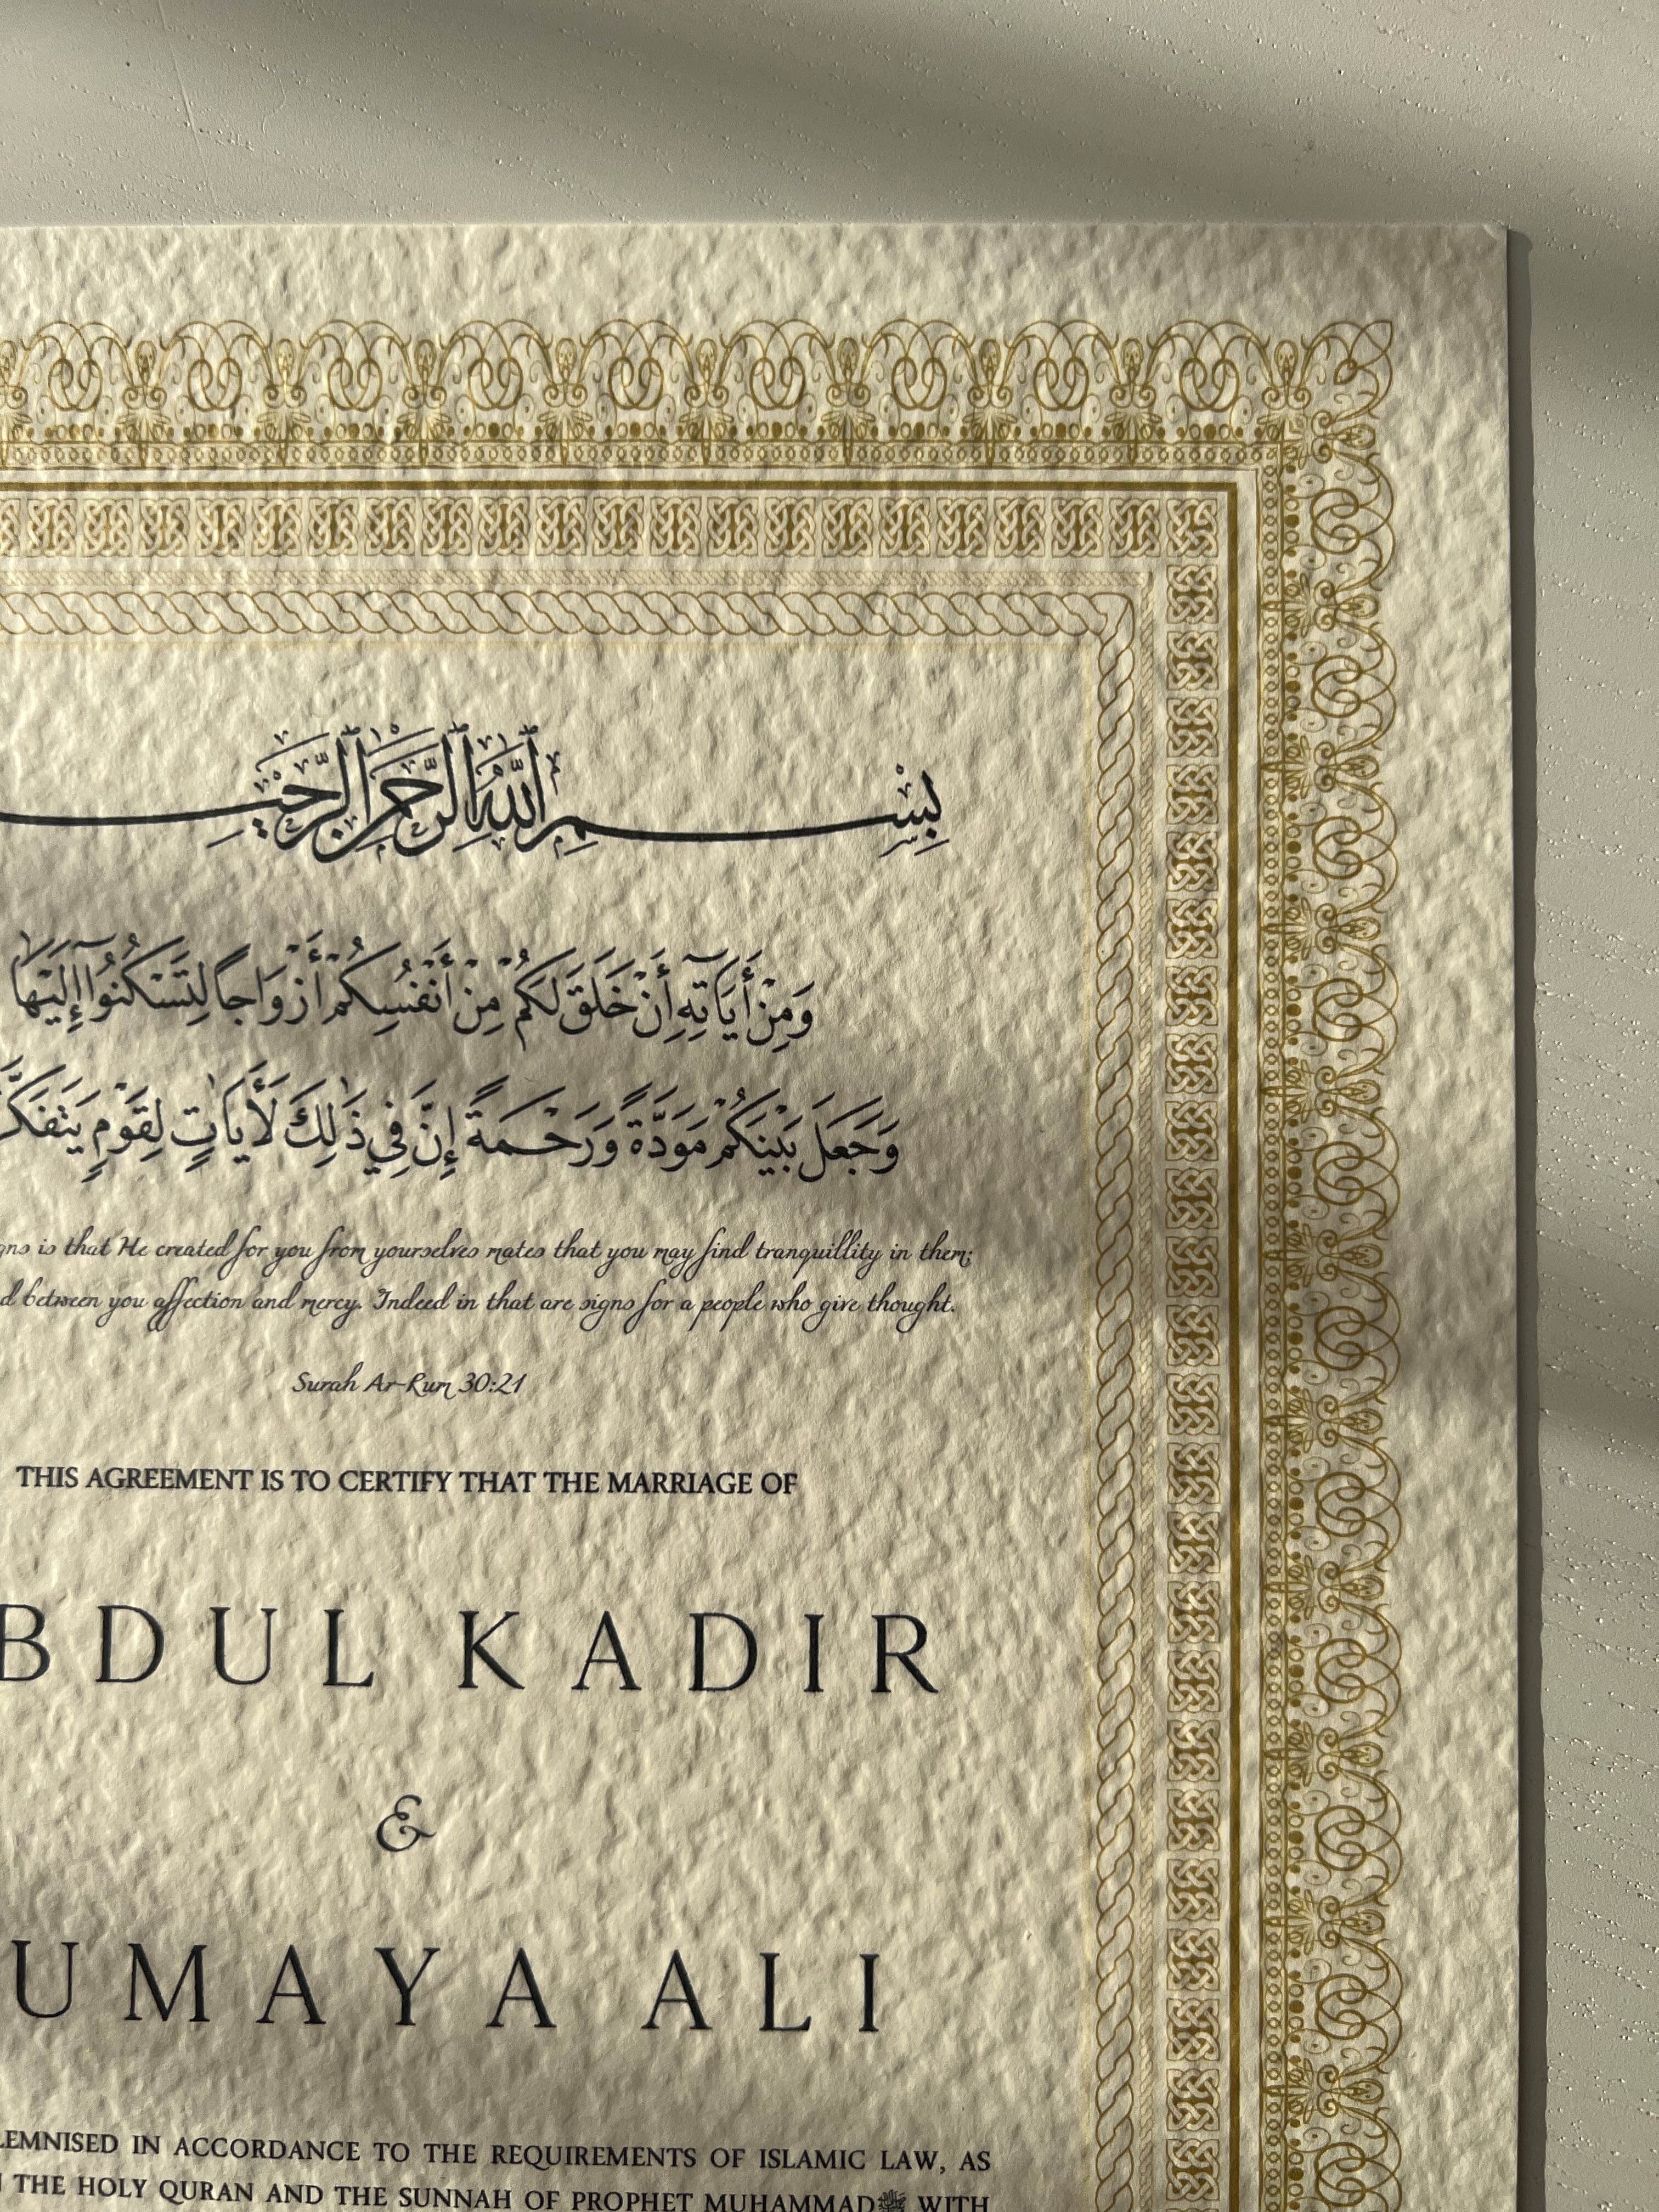 بِسْمِ اللَّهِ الرَّحْمَٰنِ
وَمِنْ أَيَاتِهِ أَنْ خَلَقَ لَكُمْ مِنْ أَنْفُسِكُمْ أَزْوَاجاً لِتَسْكُنُوا إِلَيْهَا
وَجَعَلَ بَيْنَكُمْ مَوَدَّةً وَرَحْمَةً إِنَّ فِي ذَٰلِكَ لَأَيَاتٍ لِقَوْمٍ
is that He created for you from yourselves mates that you may find tranquillity in them;
between you affection and mercy. Indeed in that are signs for a people who give thought.
Surah Ar-Rum 30:21
THIS AGREEMENT IS TO CERTIFY THAT THE MARRIAGE OF
BDUL KADIR
&
UMAYA ALI
LEMNISED IN ACCORDANCE TO THE REQUIREMENTS OF ISLAMIC LAW, AS
THE HOLY QURAN AND THE SUNNAH OF PROPHET MUHAMMAD ﷺ WITH